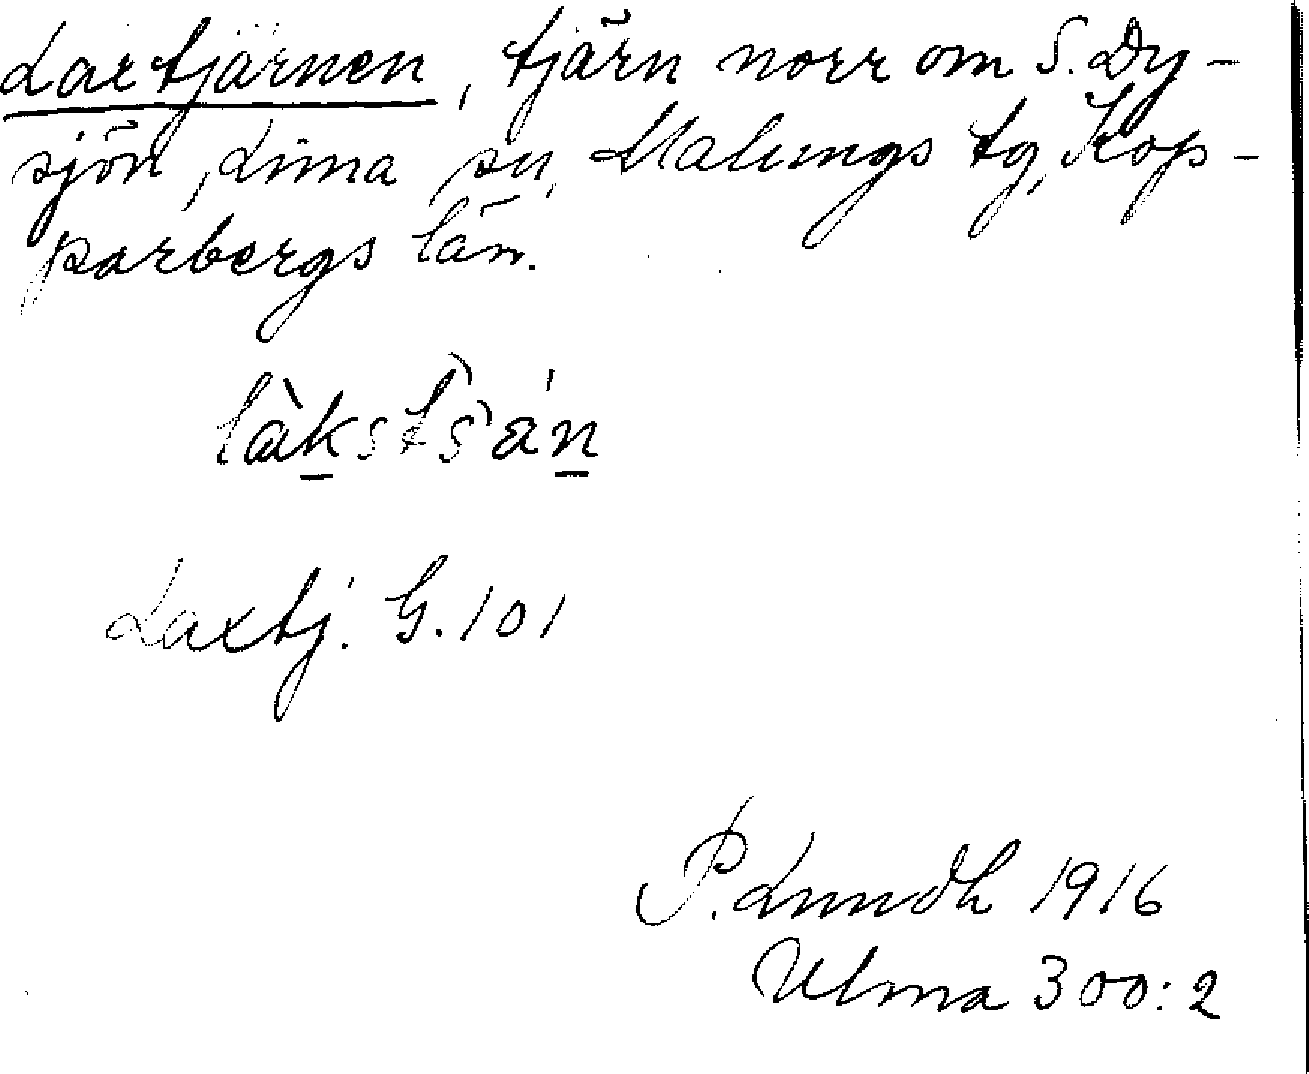 Laxtjärnen, tjärn norr om S. Dy-
sjön, Lima sn, Malungs tg, Kop-
parbergs län.
làkstšán
Laxtj. G. 101
P. Lundh 1916
Ulma 300:2